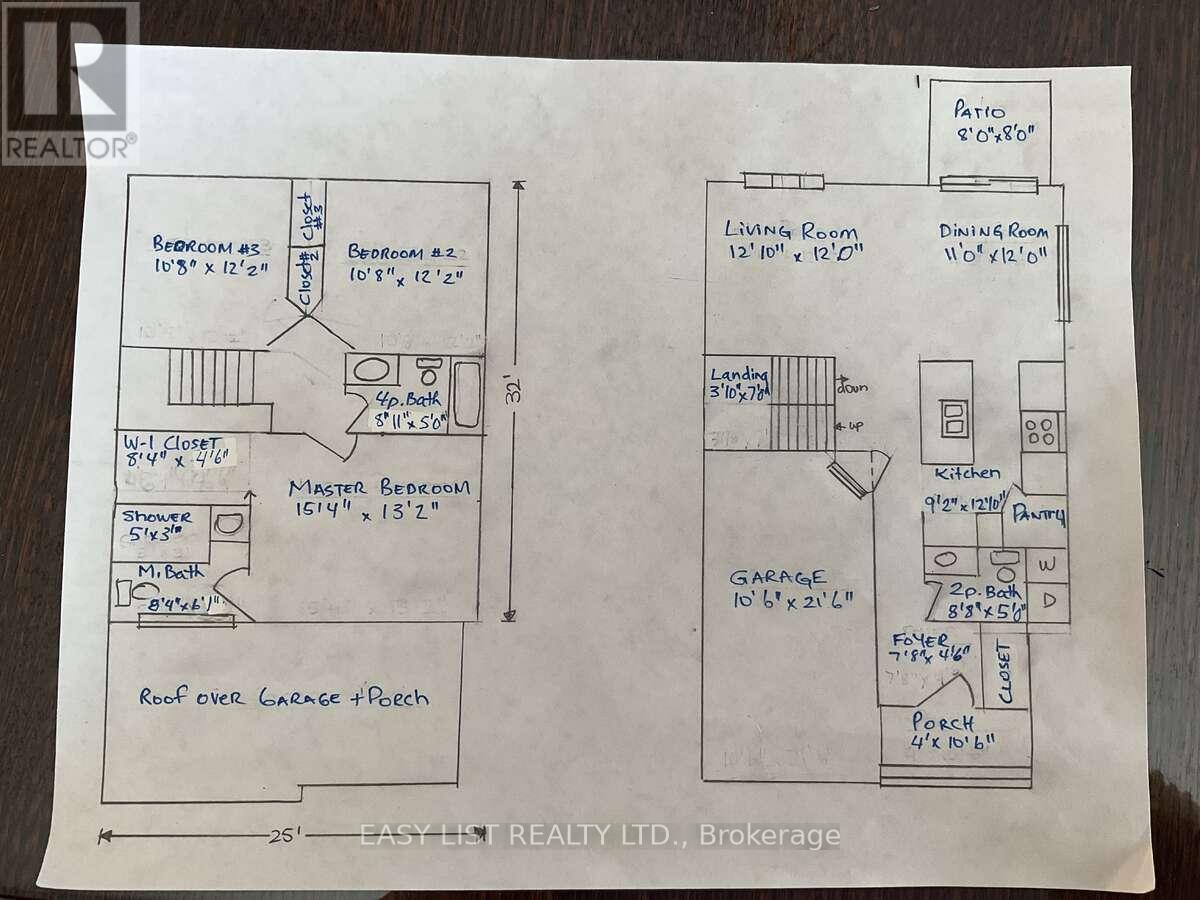 REALTOR®
BEDROOM #3
10'8" x 12'2"
Closet #3
Closet #2
BEDROOM #2
10'8" x 12'2"
4p. Bath
8'11" x 5'0"
32'
W-I CLOSET
8'4" x 4'6"
MASTER BEDROOM
15'4" x 13'2"
SHOWER
5' x 3'
M. Bath
8'4" x 6'1"
ROOF OVER GARAGE + PORCH
25'
PATIO
8'0" x 8'0"
LIVING ROOM
12'10" x 12'0"
DINING ROOM
11'0" x 12'0"
Landing
3'10" x 7'0"
down
up
Kitchen
9'2" x 12'0"
PANTRY
GARAGE
10'6" x 21'6"
W
D
2p. Bath
8'8" x 5'0"
FOYER
7'8" x 4'6"
CLOSET
PORCH
4' x 10'6"
EASY LIST REALTY LTD., Brokerage